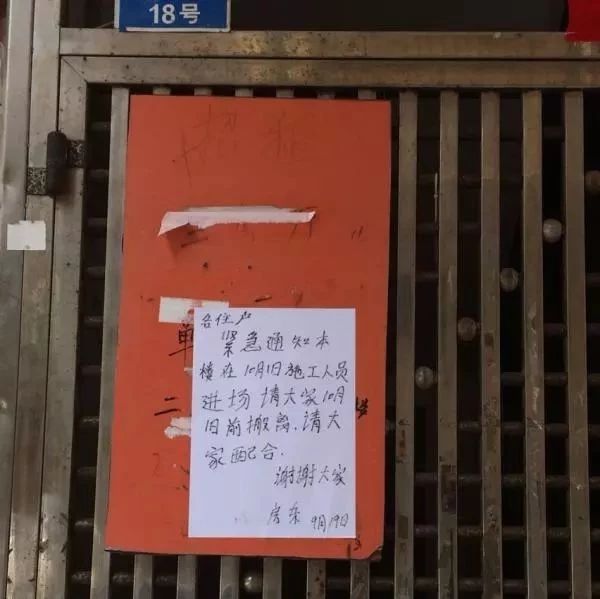 18号
招租
单
二
各住户
紧急通知本
楼在10月1日施工人员
进场情大家10月1
日前搬离.请大
家配合.
谢谢大家
房东 9月19日